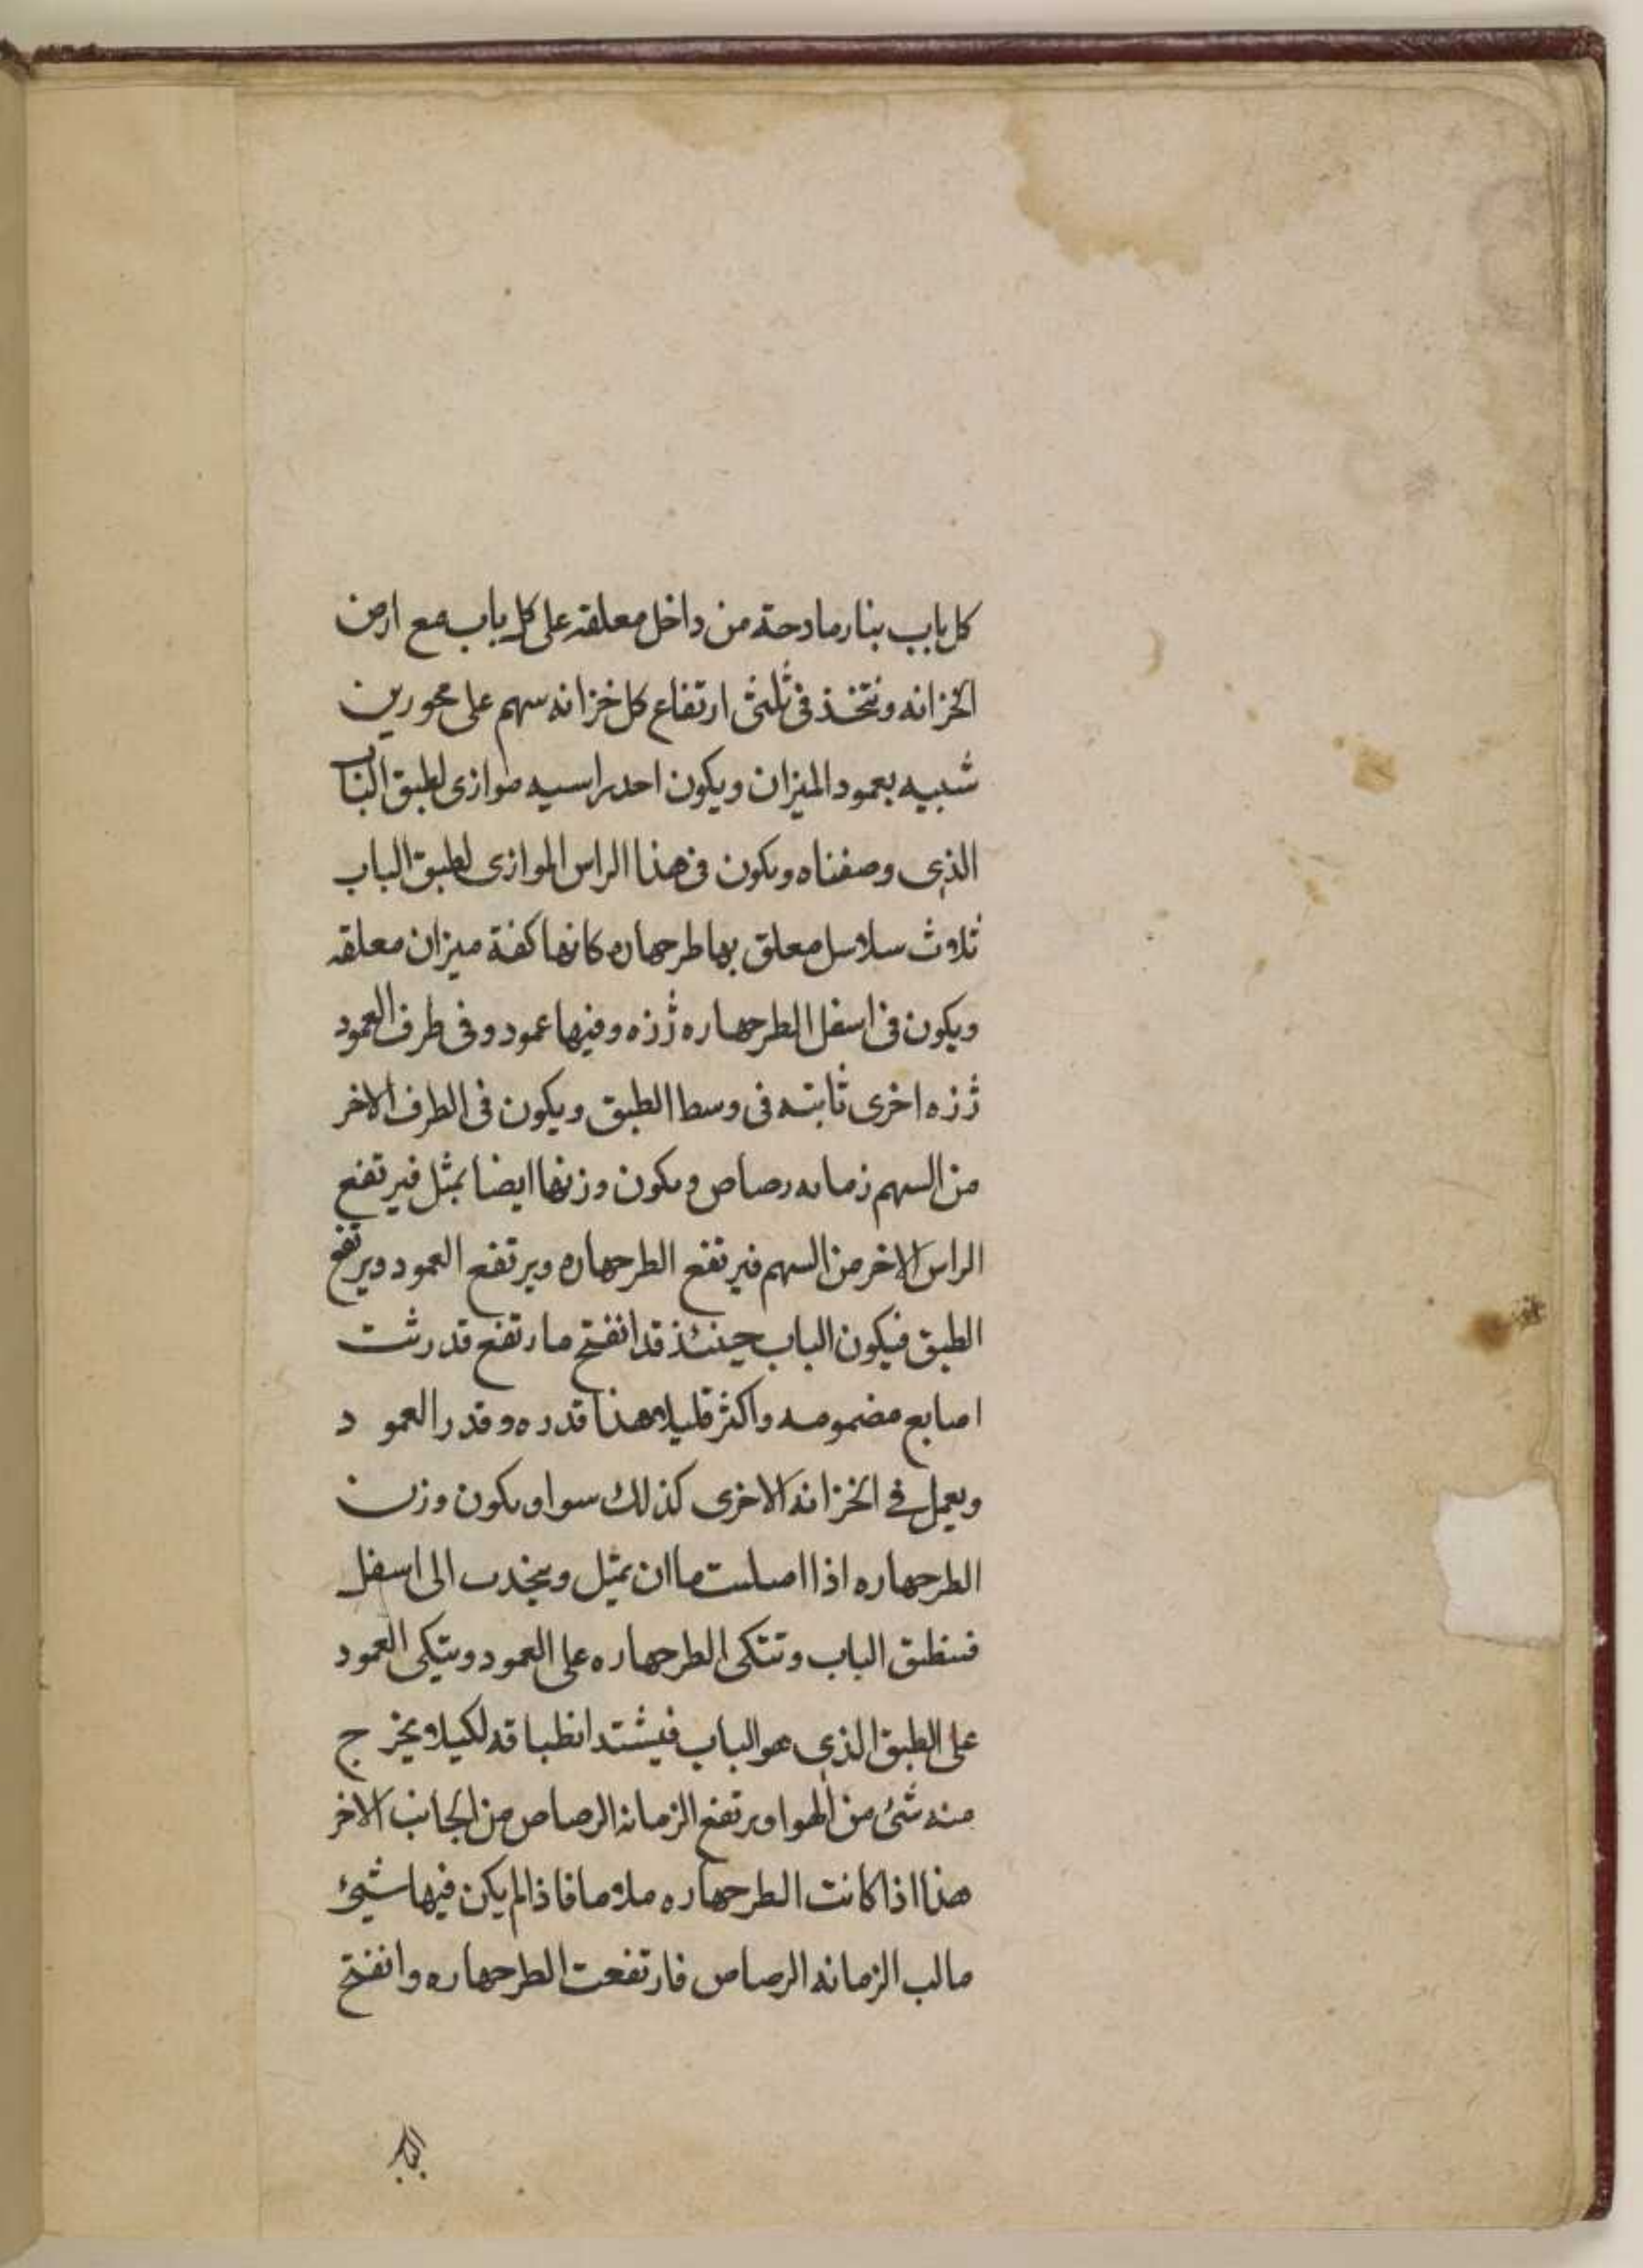 كل باب بنارمادحة من داخل معلقه على كل باب مع ارض
الخزانه ونتخذ فى ثلثى ارتفاع كل خزانه سهم على محورين
شبيه بعمود الميزان ويكون احد راسيه موازى لطبق الباب
الذى وصفناه ويكون فى هذا الراس الموازى لطبق الباب
ثلاث سلاسل معلق بها طرجهاره كانها كفة ميزان معلقه
ويكون فى اسفل الطرجهاره رزه وفيها عمود وفى طرف العمود
رزه اخرى ثابته فى وسط الطبق ويكون فى الطرف الاخر
من السهم زمانه رصاص ويكون وزنها ايضا بمثل فيرتفع
الراس الاخر من السهم فيرتفع الطرجهاره ويرتفع العمود ويرتفع
الطبق فيكون الباب حينئذ قد انفتح مارتفع قدر ثت
اصابع مضمومه واكثر قليلا هذا قدره وقدر العمود
ويعمل فى الخزانه الاخرى كذلك سوا ويكون وزن
الطرجهاره اذا ملت ماان تمثل وينجذب الى اسفل
فينطبق الباب وتتكى الطرجهاره على العمود ويتكى العمود
على الطبق الذى هو الباب فيشتد انطباقه لكيلا ويخرج
منه شئ من الهوا ويرتفع الزمانه الرصاص من الجانب الاخر
هذا اذا كانت الطرجهاره ملا ما فاذا لم يكن فيها شيئ
مالب الزمانه الرصاص فارتفعت الطرجهاره وانفتح
الباب